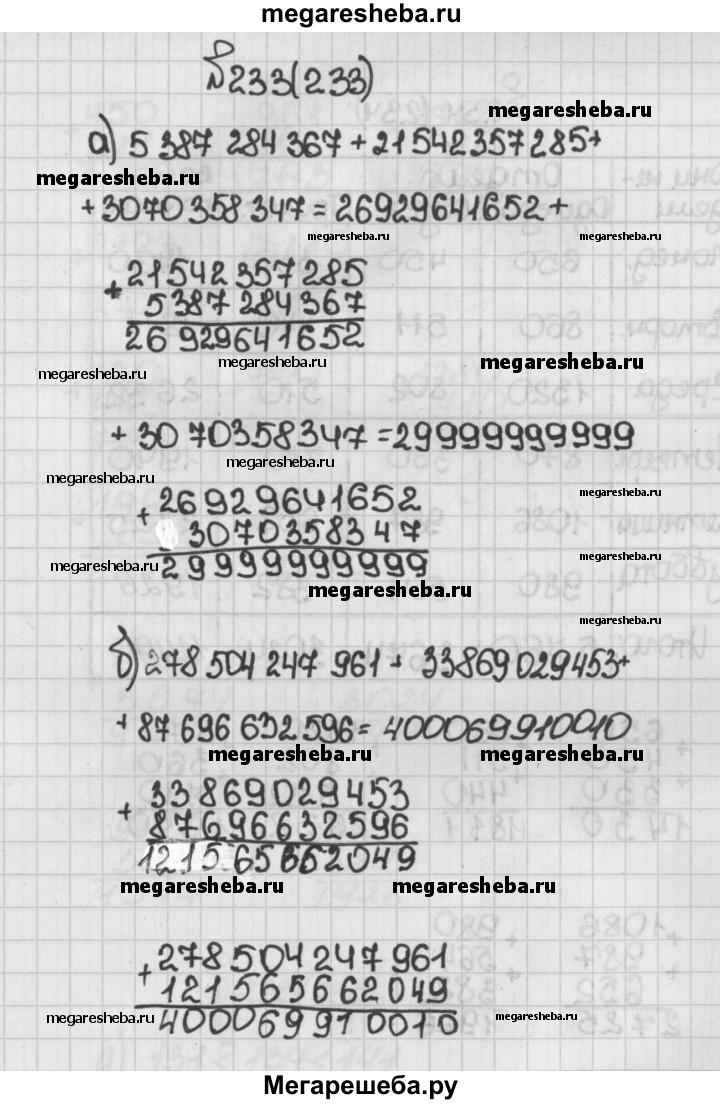 megaresheba.ru
№233(233)
megaresheba.ru
а) 5 387 284 367 + 21542357285+
megaresheba.ru
+3070358347=26929641652+
megaresheba.ru
megaresheba.ru
+ 21542357285
5387284367
26929641652
megaresheba.ru
megaresheba.ru
megaresheba.ru
+3070358347=29999999999
megaresheba.ru
megaresheba.ru
megaresheba.ru
+ 26929641652
3070358347
29999999999
megaresheba.ru
megaresheba.ru
megaresheba.ru
б) 278 504 247 961 + 33869029453+
+87 696 632 596= 400069910010
megaresheba.ru
megaresheba.ru
+ 33869029453
87696632596
121565662049
megaresheba.ru
megaresheba.ru
+ 278504247961
121565662049
400069910010
megaresheba.ru
megaresheba.ru
Мегарешеба.ру